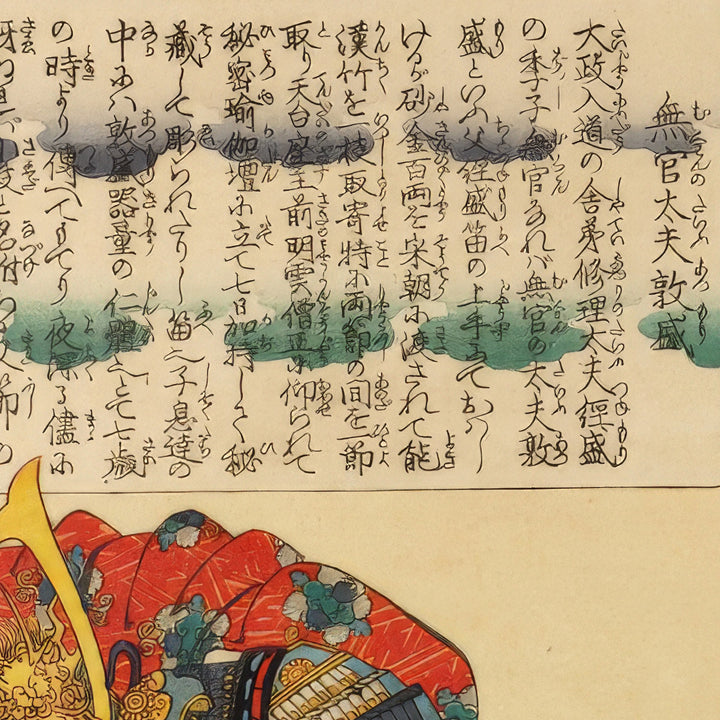 無官太夫敦盛
大政入道の舎弟修理太夫經盛
の季子無官なれバ無官の太夫敦
盛といふ父經盛笛の上手にておハし
けるが砂金百両を宋朝に渡されて能
漢竹を一枝取寄特に両節の間を一節
取り天台座主前明雲僧正に仰られて
秘密瑜伽壇に立て七日加持して秘
蔵して彫られたりし笛也子息達の
中にハ敦盛器量の仁躰とて七歳
の時より傳へてもてり夜深る儘に